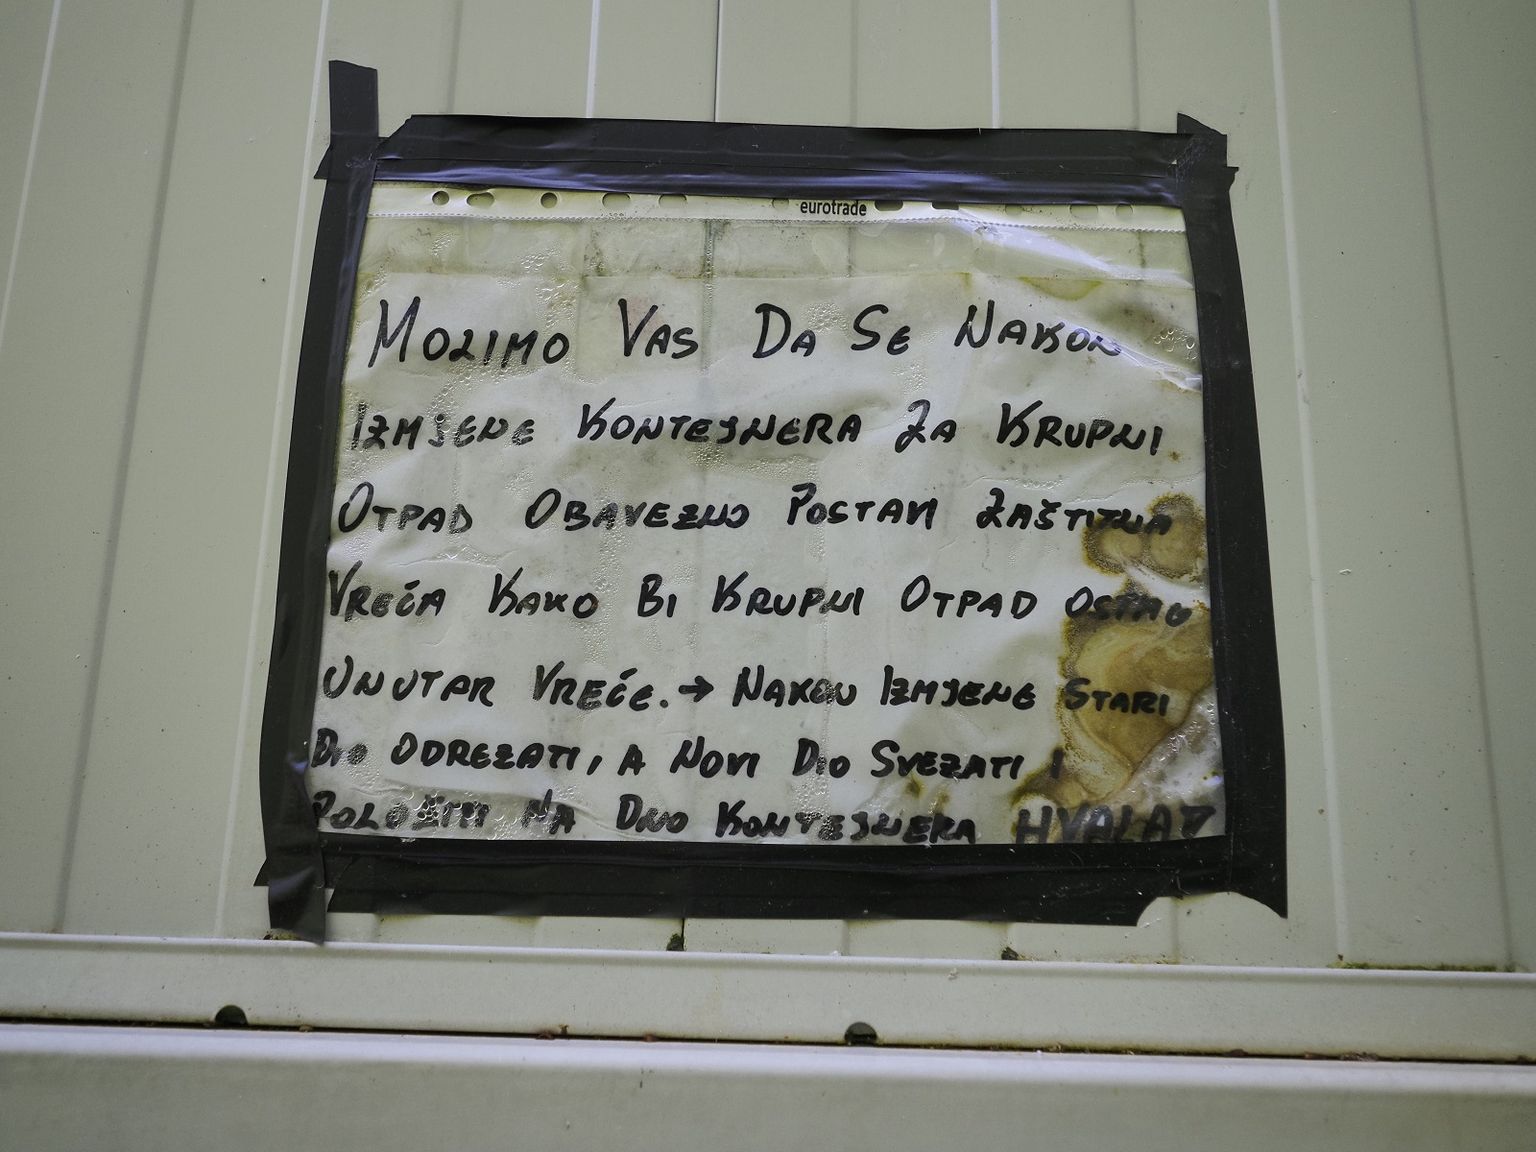 eurotrade
MOLIMO VAS DA SE NAKON
IZMJENE KONTEJNERA ZA KRUPNI
OTPAD OBAVEZNO POSTAVI ZAŠTITNA
VREĆA KAKO BI KRUPNI OTPAD OSTAO
UNUTAR VREĆE. → NAKON IZMJENE STARI
DIO ODREZATI, A NOVI DIO SVEZATI I
POLOŽITI NA DNO KONTEJNERA HVALA